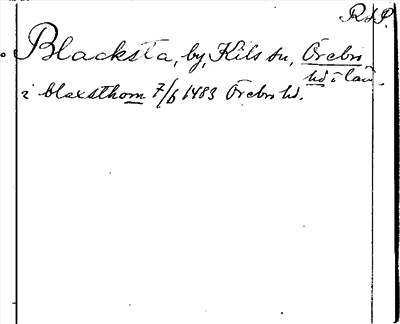 RAP.
Blacksta, by, Kils sn, Örebro
hd o län.
i blaxsthom 7/6 1483 Örebro hd.